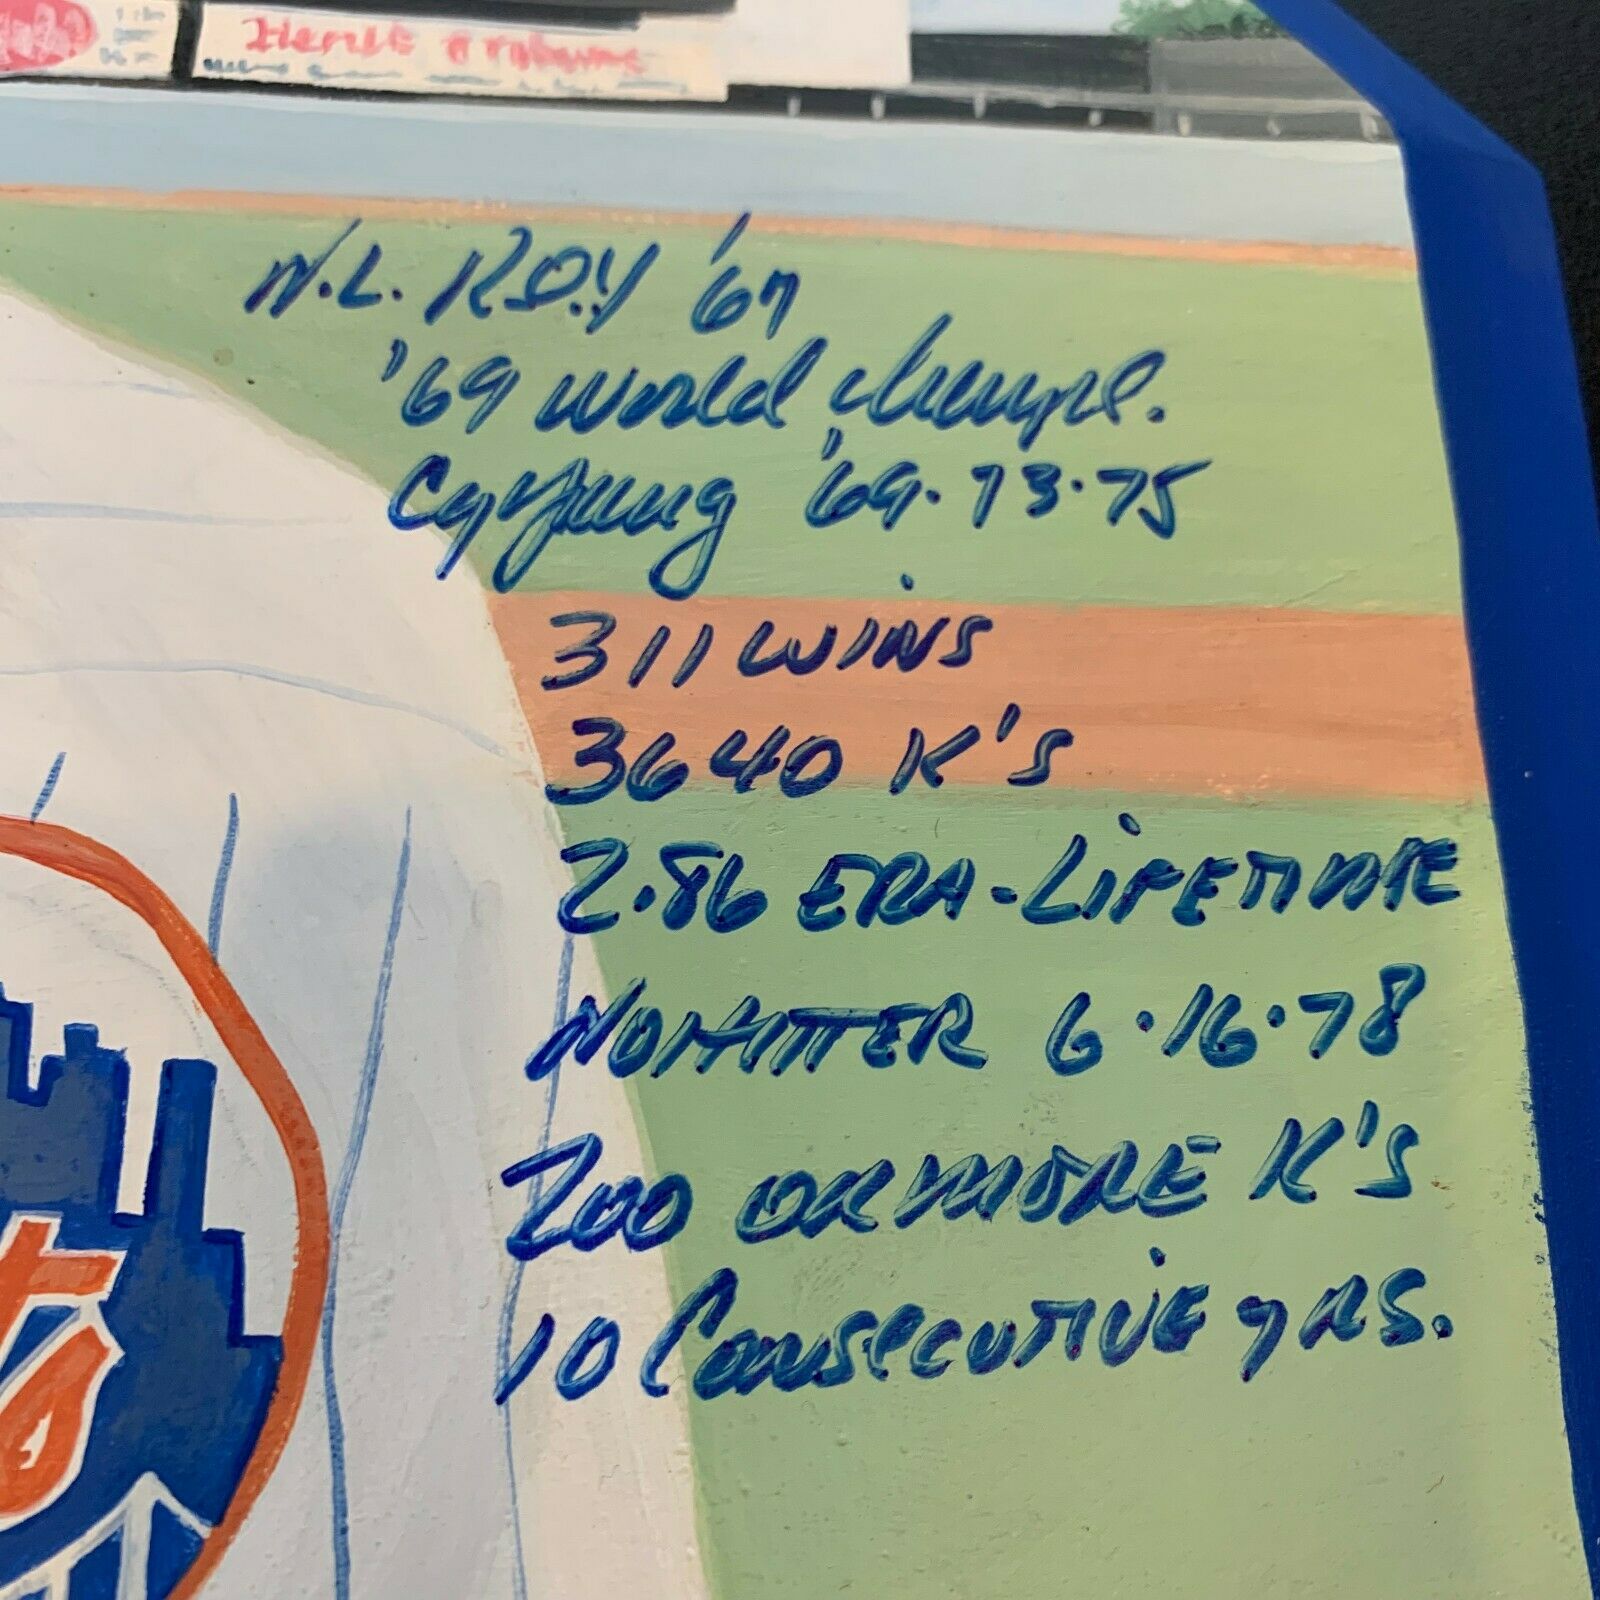 N.L. R.O.Y '67
'69 World Champs.
Cy Young '69.73.75
311 WINS
3640 K'S
2.86 ERA-LIFETIME
NOHITTER 6.16.78
200 OR MORE K'S
10 CONSECUTIVE YRS.